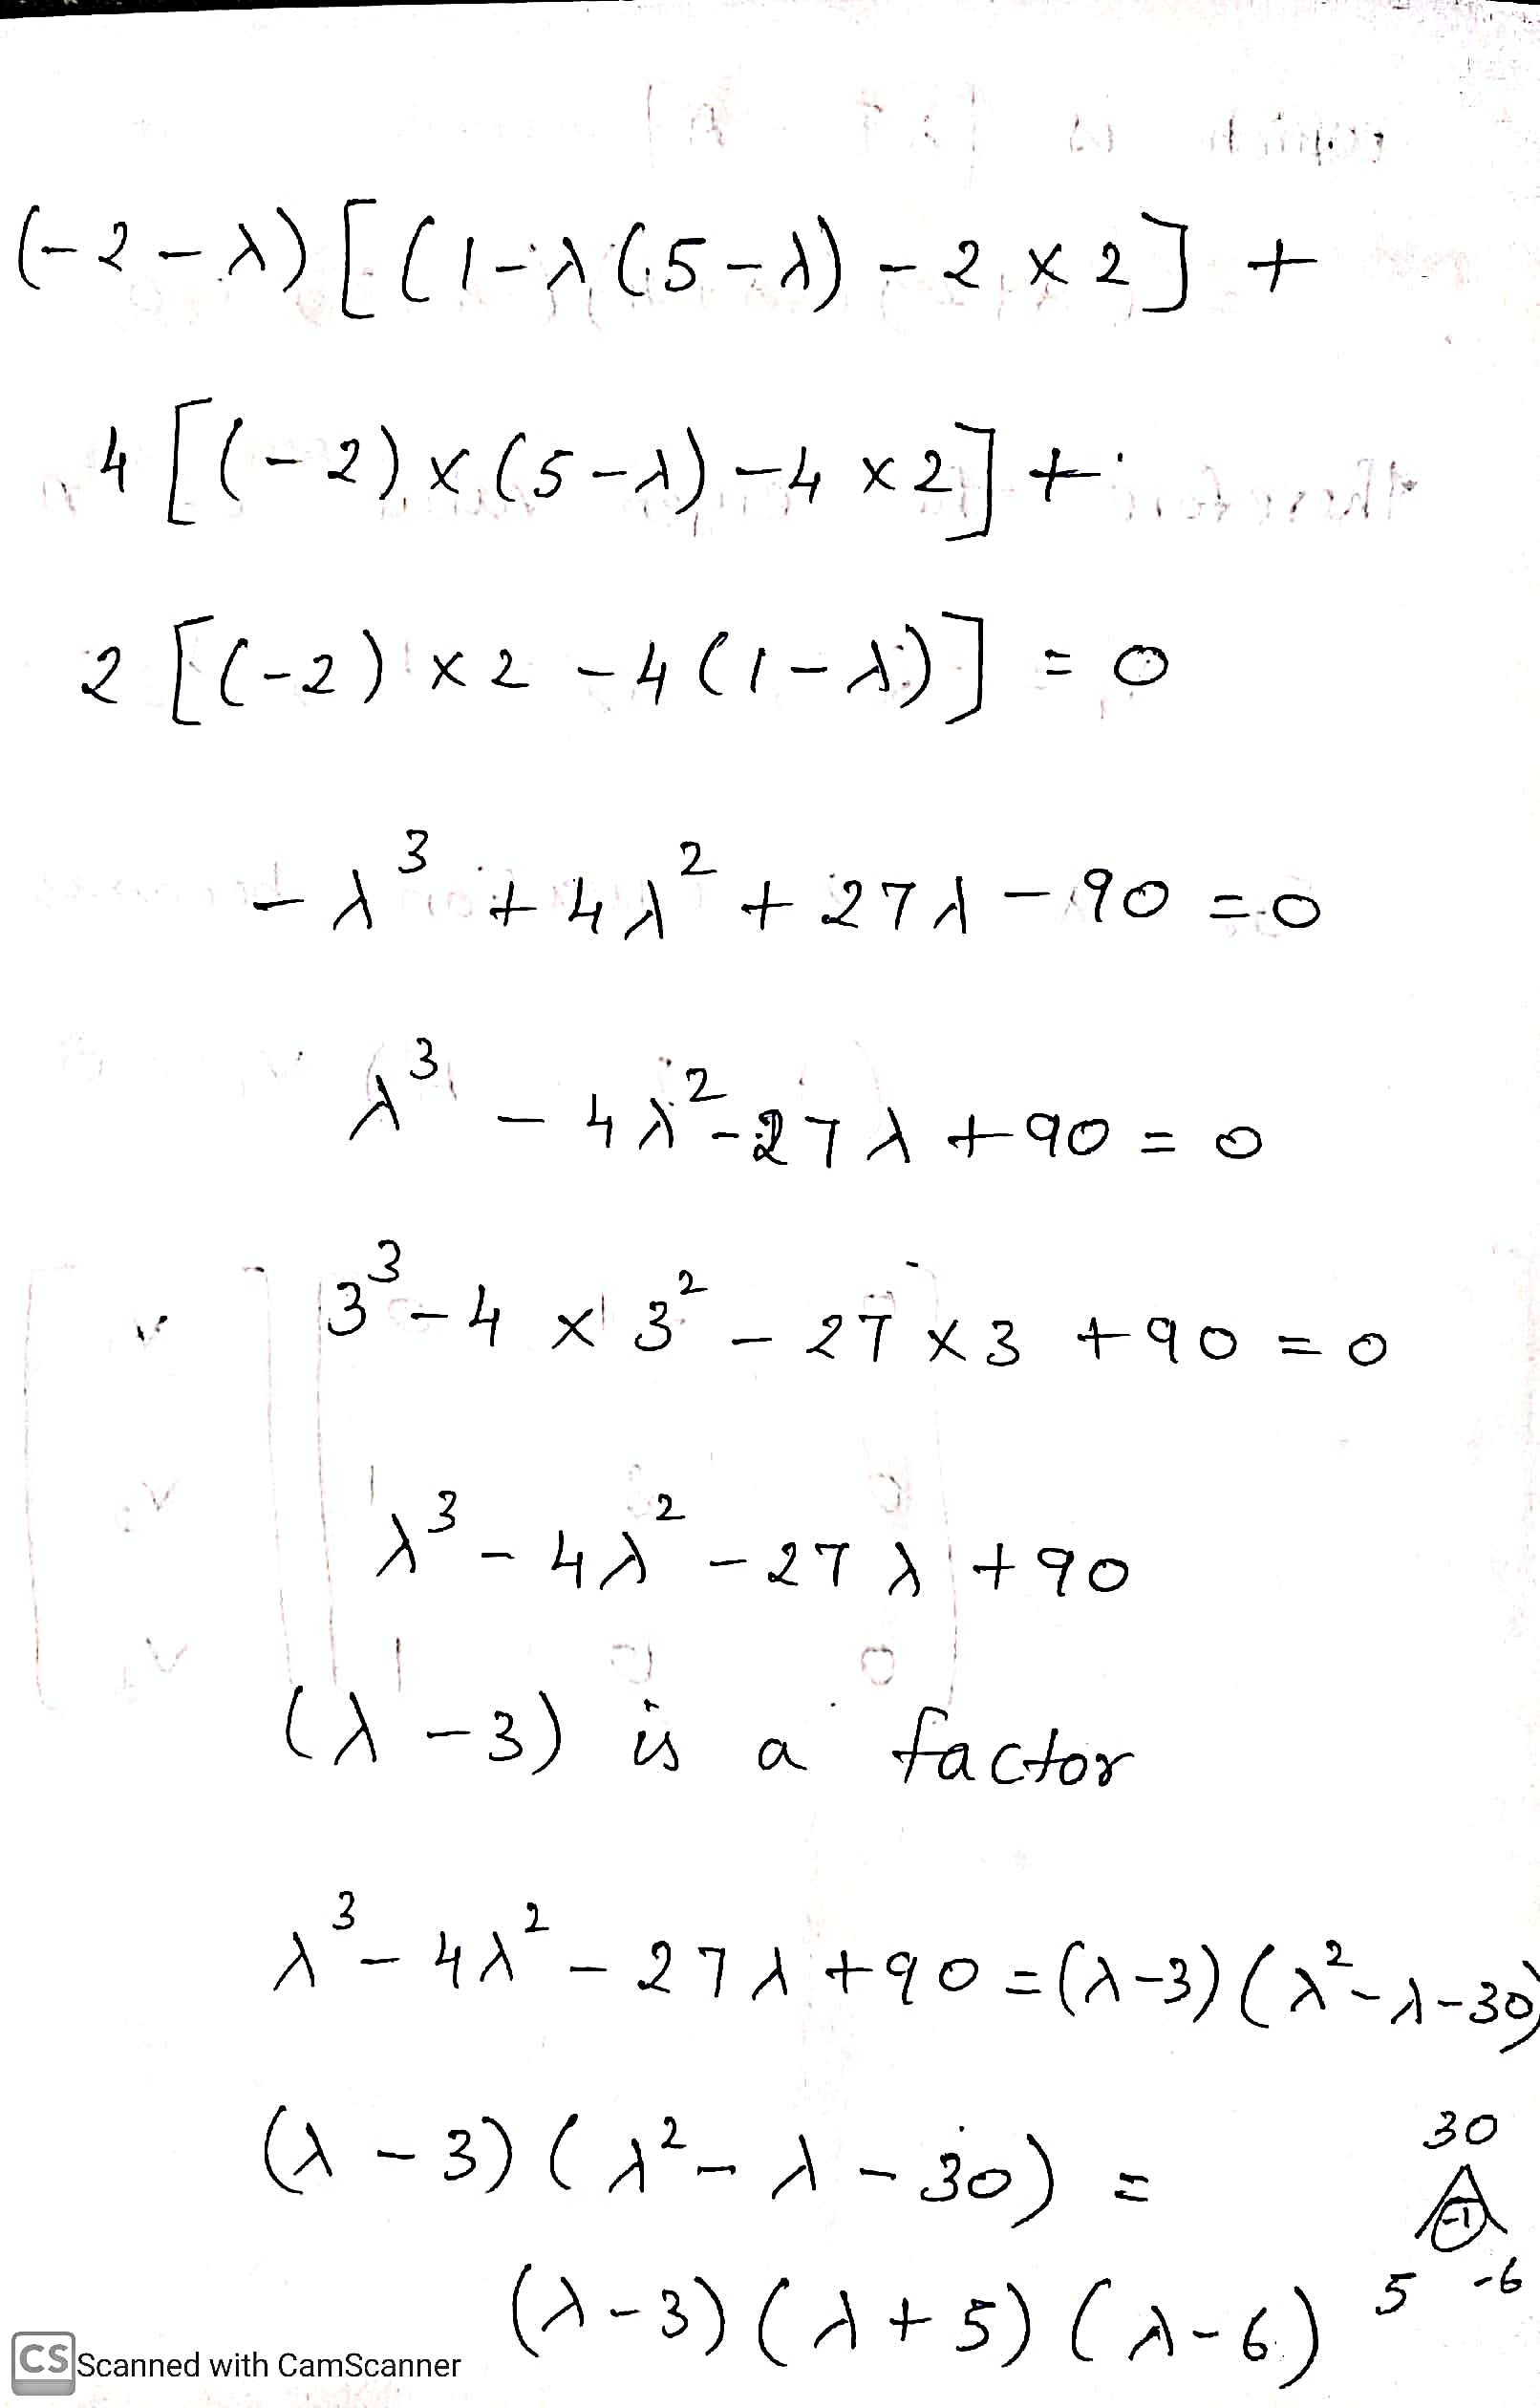 (-2-λ)[(1-λ(5-λ)-2×2]+
4[(-2)×(5-λ)-4×2]+
2[(-2)×2-4(1-λ)]=0
-λ³+4λ²+27λ-90=0
λ³-4λ²-27λ+90=0
3³-4×3²-27×3+90=0
λ³-4λ²-27λ+90
(λ-3) is a factor
λ³-4λ²-27λ+90=(λ-3)(λ²-λ-30)
(λ-3)(λ²-λ-30)=
30
-1
5 -6
(λ-3)(λ+5)(λ-6)
CS Scanned with CamScanner